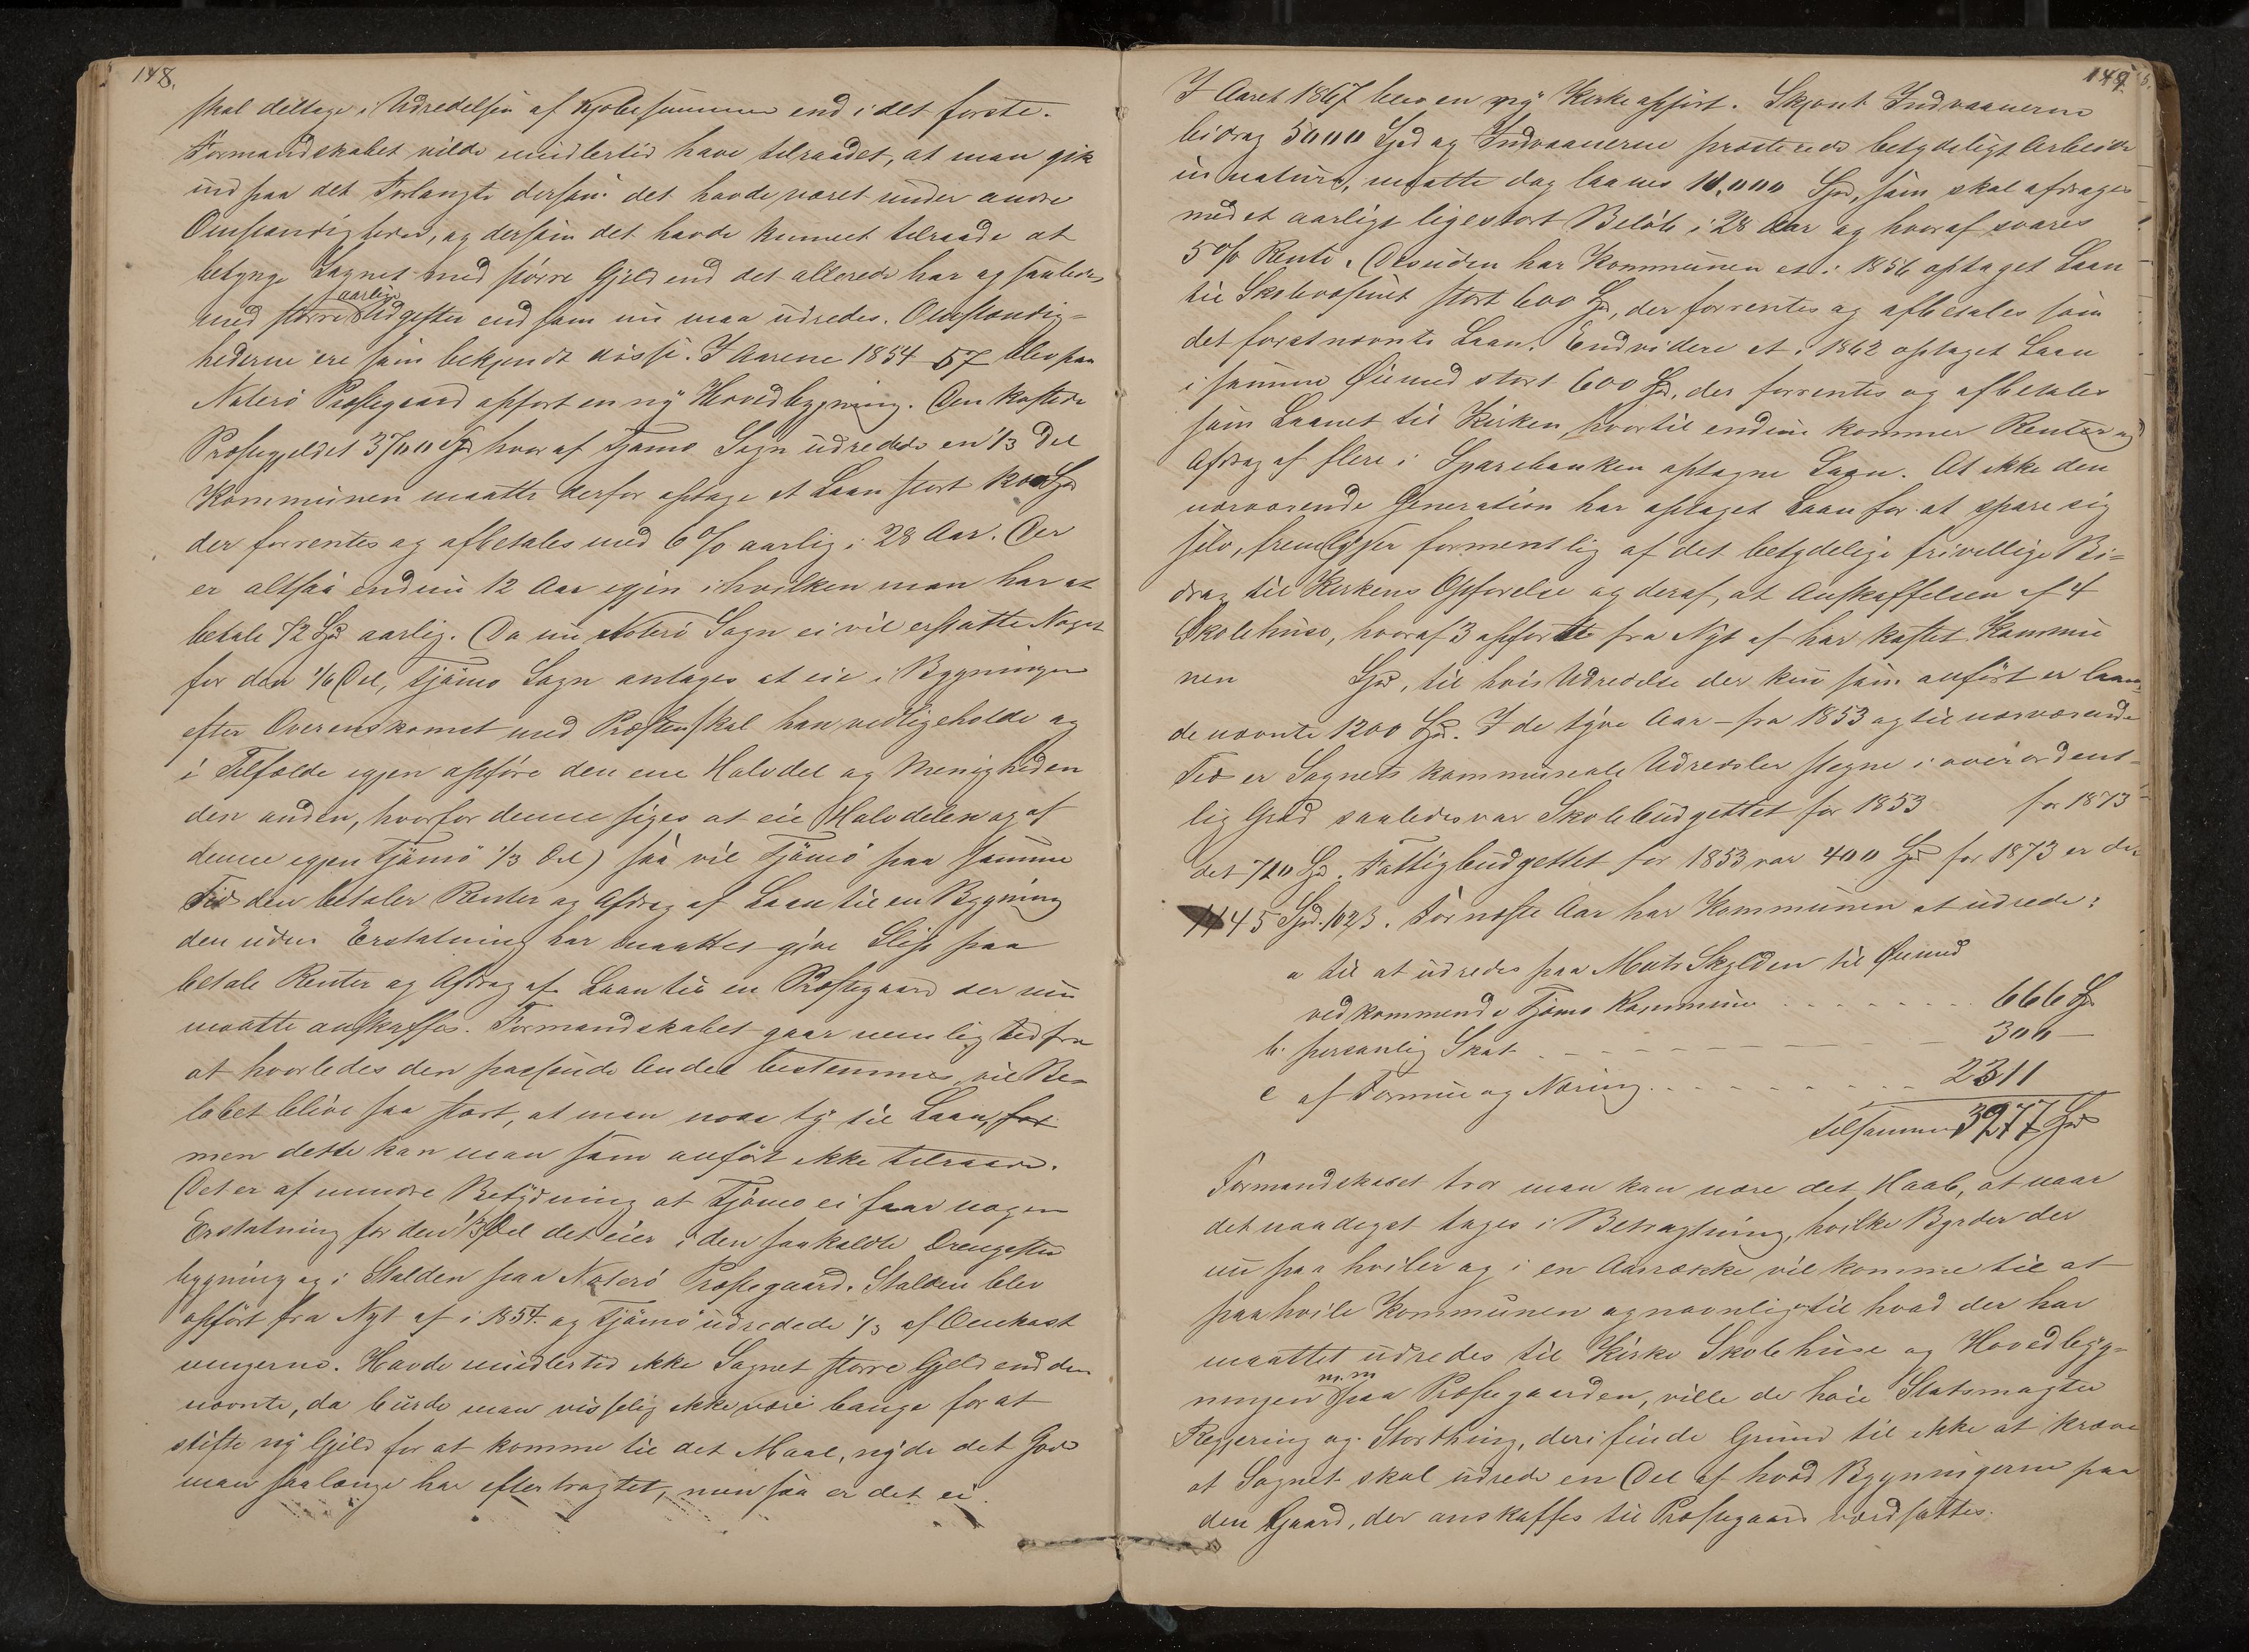 148.
skal deltage i Udredelsen af Kjøbesummen end i det første.
Formandskabet vilde imidlertid have tilraadet, at man gik
ind paa det Forlangte dersom det havde været under andre
Omstændigheder, og dersom det havde kunnet tilraade at
betynge Sognet med større Gjeld end det allerede har og saaledes
med større aarlige Udgifter end som nu maa udredes. Omstændig=
hederne ere som bekjendt disse. I Aarene 1854-57 blev paa
Noterø Præstegaard opført en ny Hovedbygning. Den kostede
Præstegjeldet 3700 Spd hvoraf Tjømø Sogn udredede en 1/3 Del
Kommunen maatte derfor optage et Laan stort 1200 Spd
der forrentes og afbetales med 6% aarlig i 28 Aar. Der
er altsaa endnu 12 Aar igjen i hvilken man har at
betale 72 Spd aarlig. Da nu Noterø Sogn ei vil erstatte Noget
for den 1/6 Del, Tjømø Sogn antages at eie i Bygningen
efter Overenskomst med Præsten skal han vedligeholde og
i Tilfælde igjen opføre den ene Halvdel og Menigheden
den anden, hvorfor denne siges at eie Halvdelen og af
denne igjen Tjømø 1/3 Del) saa vil Tjømø paa samme
Tid den betaler Renter og Afdrag af Laan til en Bygning
den uden Erstatning har maattet give Slip paa
betale Renter og Afdrag af Laan til en Præstegaard der nu
maatte anskaffes. Formandskabet gaar nemlig ud fra
at hvorledes den paafaldende Andel bestemmes, vil Be=
løbet blive saa stort, at man maa ty til Laan, for
men dette kan man som anført ikke tilraade.
Det er af mindre Betydning at Tjømø ei faar nogen
Erstatning for den 1/3 Del det eier i den saakaldte Drengestue
bygning og i Stalden paa Noterø Præstegaard. Stalden blev
opført fra Nyt af i 1854 og Tjømø udredede 1/3 af Omkost
ningerne. Havde imidlertid ikke Sognet større Gjeld end den
nævnte, da burde man visselig ikke være bange for at
stifte ny Gjeld for at komme til det Maal, nyde det Gode
man saalænge har eftertragtet, men saa er det ei.
149.
I Aaret 1867 blev en ny Kirke opført. Skjønt Indvaanerne
bidrog 5000 Spd og Indvaanerne præsterede betydeligt Arbeide
in natura, maatte dog laanes 10,000 Spd, som skal afdrages
med et aarligt ligestort Beløb i 28 Aar og hvoraf svares
5% Rente. Desuden har Kommunen et i 1856 optaget Laan
til Skolevæsenet stort 600 Spd, der forrentes og afbetales som
det førstnævnte Laan. Endvidere et i 1862 optaget Laan
i samme Øiemed stort 600 Spd, der forrentes og afbetales
som Laanet til Kirken, hvortil endnu kommer Renter og
Afdrag af flere i Sparebanken optagne Laan. At ikke den
nærværende Generation har optaget Laan for at spare sig
selv, fremlyser formentlig af det betydelige frivillige Bi=
drag til Kirkens Opførelse og deraf, at Anskaffelsen af 4
Skolehuse, hvoraf 3 opførte fra Nyt af har kostet Kommu
nen Spd, til hvis Udredelse der kun som anført er laant
de nævnte 1200 Spd. I de tyve Aar - fra 1853 og til nærværende
Tid er Sognets kommunale Udredsler stegne i overordent=
lig Grad saaledes var Skolebudgettet for 1853 for 1873
det 710 Spd. Fattigbudgettet for 1853 var 400 Spd for 1873 er det
1145 Spd. 1023. For næste Aar har Kommunen at udrede:
a til at udredes paa Matr Skylden til Øiemed
vedkommende Tjømø Kommune - - - - - 666 Spd
b. personlig Skat - - - - - 300 —
c af Formue og Næring - - - - - 2311
tilsammen 3277 Spd
Formandskabet tror man kan nære det Haab, at naar
det naadigst tages i Betragtning, hvilke Byrder der
nu paahviler og i en Aarrække vil komme til at
paahvile Kommunen og navnlig til hvad der har
maattet udredes til Kirke Skolehuse og Hovedbyg=
ningen m. m paa Præstegaarden, ville de høie Statsmagter
Regjering og Storthing, deri finde Grund til ikke at kræve
at Sognet skal udrede en Del af hvad Bygningerne paa
den Gaard, der anskaffes til Præstegaard værdsættes.